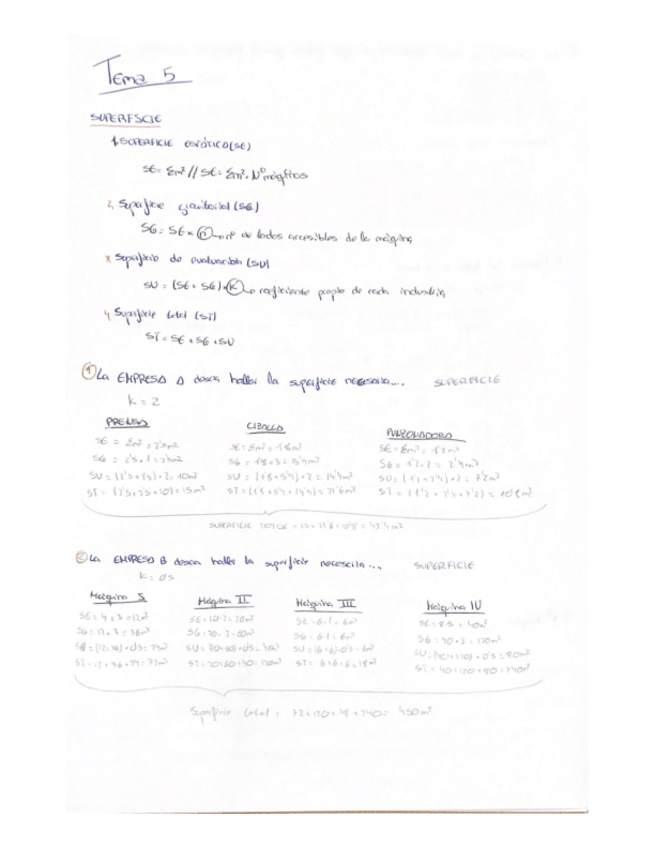 Tema 5
SUPERFICIE
1. SUPERFICIE ESTÁTICO (SE)
SE = Σm² // SE = Σm² · Nº máquinas
2. Superficie gravitacional (SG)
SG = SE × n → nº de lados accesibles de la máquina
Superficie de evaluación (SU)
SU = (SE + SG) · K → coeficiente propio de cada industria
4. Superficie total (ST)
ST = SE + SG + SU
① La EMPRESA A desea hallar la superficie necesaria.... SUPERFICIE
K = 2
PRENSA CIZALLA PUNZONADORA
SE = Σm² = 2'5m² SE = Σm² = 1'8m² SE = Σm² = 1'2m²
SG = 2'5 · 1 = 2'5m² SG = 1'8 × 3 = 5'4m² SG = 1'2 · 2 = 2'4m²
SU = (2'5 + 2'5) · 2 = 10m² SU = (1'8 + 5'4) · 2 = 14'4m² SU = (1'2 + 2'4) · 2 = 7'2m²
ST = (2'5 + 2'5 + 10) = 15m² ST = (1'8 + 5'4 + 14'4) = 21'6m² ST = (1'2 + 2'4 + 7'2) = 10'8m²
SUPERFICIE TOTAL = 15 + 21'6 + 10'8 = 47'4m²
② La EMPRESA B desea hallar la superficie necesaria... SUPERFICIE
K = 0'5
Máquina I Máquina II Máquina III Máquina IV
SE = 4 × 3 = 12m² SE = 10 · 2 = 20m² SE = 6 · 1 = 6m² SE = 8 · 5 = 40m²
SG = 12 × 3 = 36m² SG = 20 · 3 = 60m² SG = 6 · 1 = 6m² SG = 40 × 3 = 120m²
SU = (12 + 36) × 0'5 = 24m² SU = (20 + 60) × 0'5 = 40m² SU = (6 + 6) · 0'5 = 6m² SU = (40 + 120) × 0'5 = 80m²
ST = 12 + 36 + 24 = 72m² ST = 20 + 60 + 40 = 120m² ST = 6 + 6 + 6 = 18m² ST = 40 + 120 + 80 = 240m²
Superficie total = 72 + 120 + 18 + 240 = 450m²